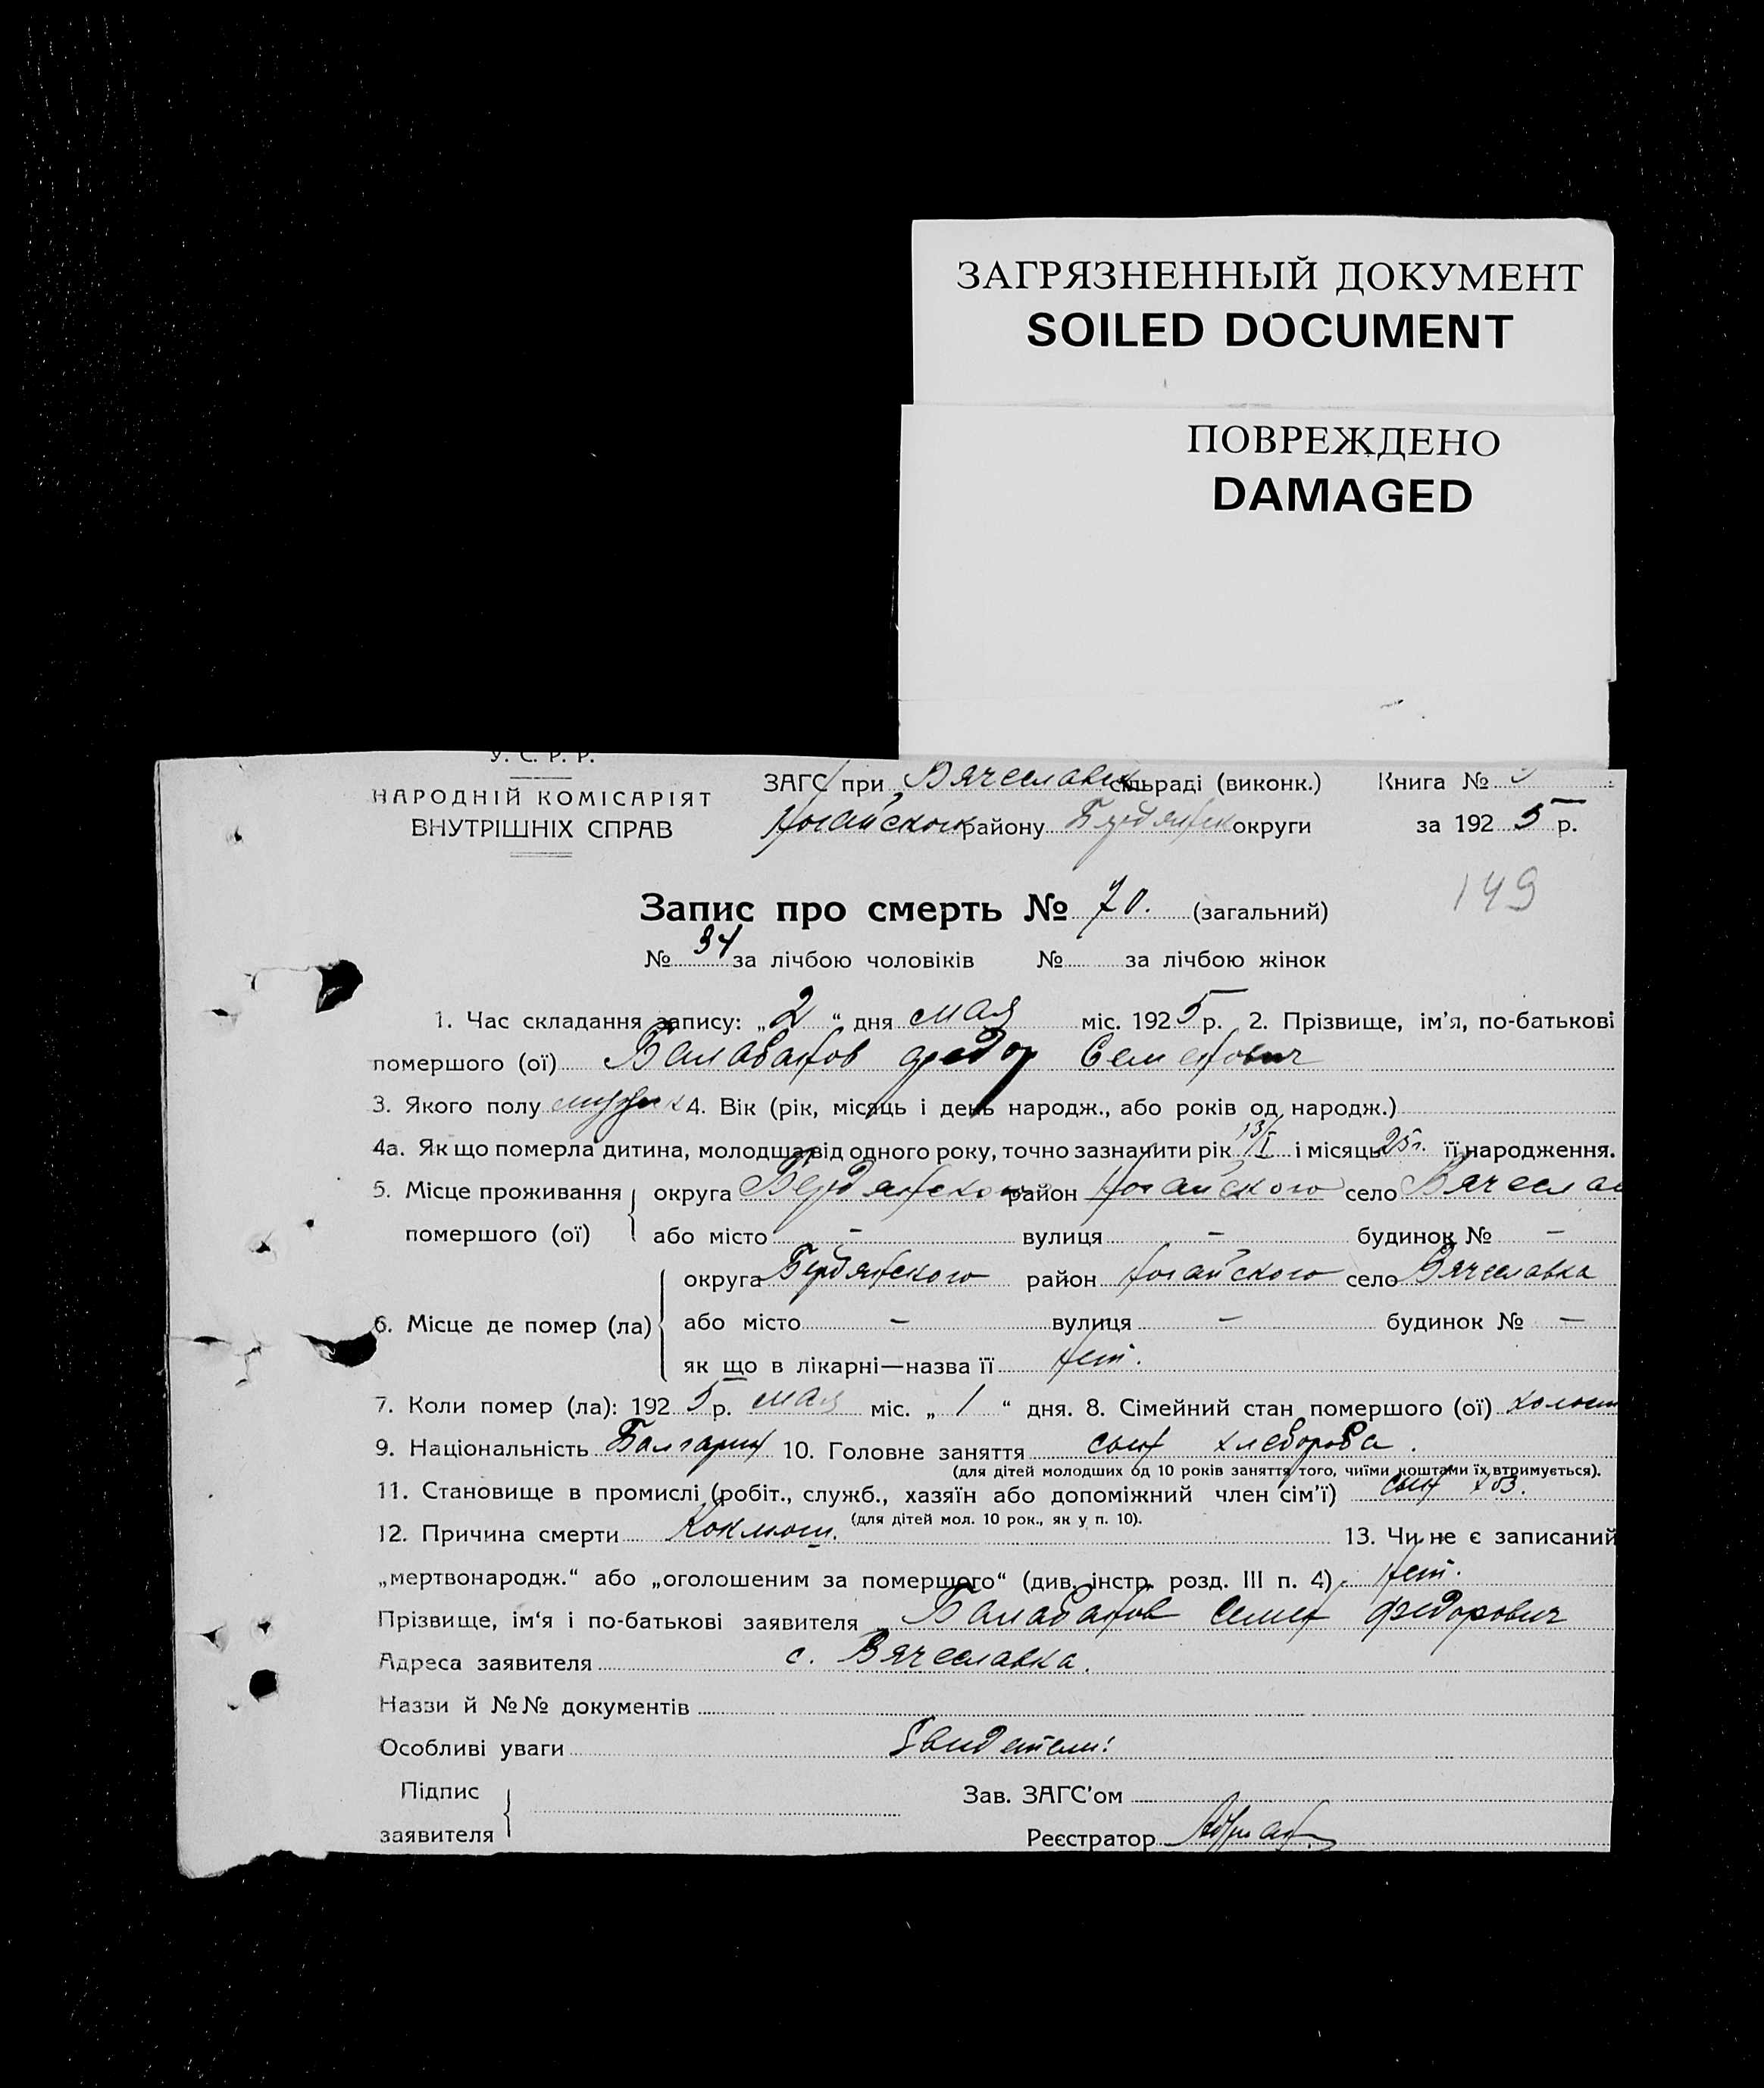 ЗАГРЯЗНЕННЫЙ ДОКУМЕНТ
SOILED DOCUMENT
ПОВРЕЖДЕНО
DAMAGED
У. С. Р. Р.
НАРОДНІЙ КОМІСАРІЯТ
ВНУТРІШНІХ СПРАВ
ЗАГС при Вячеславск сільраді (виконк.) Книга №
Ногайского району Бердянск округи за 1925 р.
149
Запис про смерть № 70. (загальний)
№ 34 за лічбою чоловіків № за лічбою жінок
1. Час складання запису: „2“ дня мая міс. 1925 р. 2. Прізвище, ім’я, по-батькові
помершого (ої) Балабанов Федор Семенович
3. Якого полу мужск 4. Вік (рік, місяць і день народж., або років од народж.)
4а. Як що померла дитина, молодша від одного року, точно зазначити рік 13/I і місяць 25 г. її народження.
5. Місце проживання помершого (ої) округа Бердянского район Ногайского село Вячеслав
або місто – вулиця – будинок № –
6. Місце де помер (ла) округа Бердянского район Ногайского село Вячеславка
або місто – вулиця – будинок № –
як що в лікарні—назва її нет.
7. Коли помер (ла): 1925 р. мая міс. „1“ дня. 8. Сімейний стан помершого (ої) холост
9. Національність Болгарин 10. Головне заняття сын хлебороба.
(для дітей молодших од 10 років заняття того, чиїми коштами їх втримується).
11. Становище в промислі (робіт., служб., хазяїн або допоміжний член сім’ї) сын хоз.
(для дітей мол. 10 рок., як у п. 10).
12. Причина смерти Коклюш. 13. Чи не є записаний
„мертвонародж.“ або „оголошеним за померщого“ (див. інстр. розд. III п. 4) нет.
Прізвище, ім‘я і по-батькові заявителя Балабанов Семен Федорович
Адреса заявителя с. Вячеславка.
Назви й №№ документів
Особливі уваги Свидетели:
Підпис заявителя
Зав. ЗАГС’ом
Реєстратор